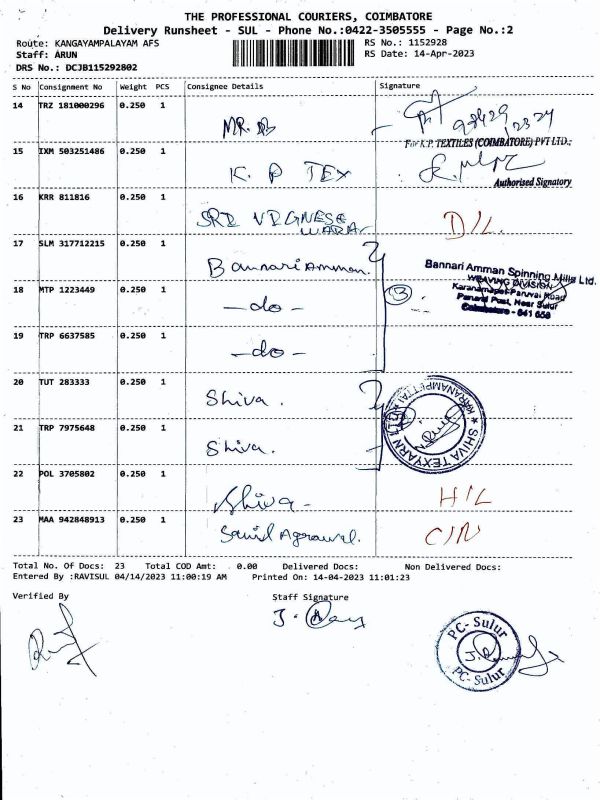 THE PROFESSIONAL COURIERS, COIMBATORE
Delivery Runsheet - SUL - Phone No.:0422-3505555 - Page No.:2
Route: KANGAYAMPALAYAM AFS RS No.: 1152928
Staff: ARUN RS Date: 14-Apr-2023
DRS No.: DCJB115292802
S No Consignment No Weight PCS Consignee Details Signature
14 TRZ 181000296 0.250 1
For K.P. TEXTILES (COIMBATORE) PVT LTD.,
15 IXM 503251486 0.250 1 K. P TEX
Authorised Signatory
16 KRR 811816 0.250 1 SRI VIGNESE D/L.
WARAR
17 SLM 317712215 0.250 1 Bannari Amman.
Bannari Amman Spinning Mills Ltd.
WEAVING DIVISION
18 MTP 1223449 0.250 1 - do - B
Karanampet-Paruvai Road
Paruvai Post, Near Sulur
Coimbatore - 641 658
19 TRP 6637585 0.250 1 - do -
20 TUT 283333 0.250 1 Shiva.
SHIVA TEXYARN KARANAMPETTAI
21 TRP 7975648 0.250 1 Shiva.
22 POL 3705802 0.250 1 Shiva- H/L
23 MAA 942848913 0.250 1 Agrawal. C/N
Total No. Of Docs: 23 Total COD Amt: 0.00 Delivered Docs: Non Delivered Docs:
Entered By :RAVISUL 04/14/2023 11:00:19 AM Printed On: 14-04-2023 11:01:23
Verified By Staff Signature
PC- Sulur
PC- Sulur